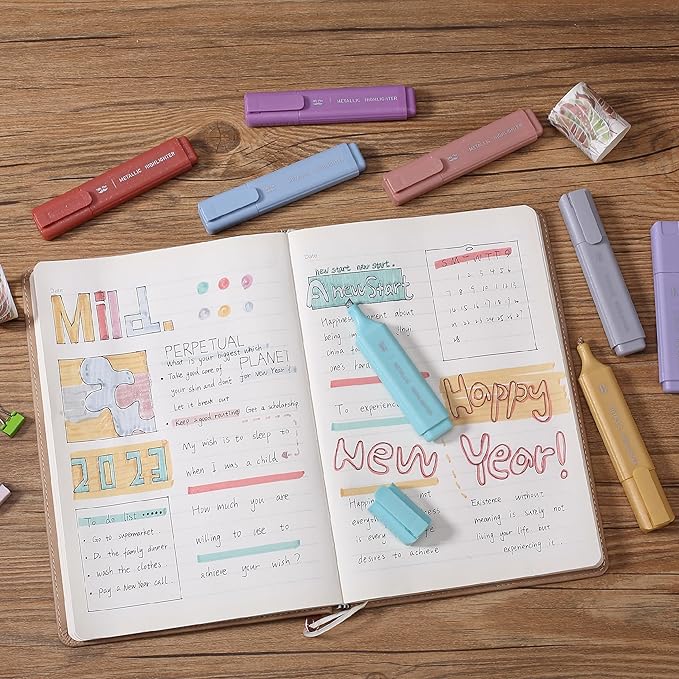 METALLIC HIGHLIGHTER
METALLIC HIGHLIGHTER
METALLIC HIGHLIGHTER
METALLIC HIGHLIGHTER
Date
Mild.
PERPETUAL
PLANET
What is your biggest which
Take good care of
your skin and don't
for New Year?
Let it break out
Keep a good routine
Get a scholarship
My wish is to sleep to
when I was a child
2023
How much you are
willing to use to
achieve your wish?
To do list
• Go to supermarket...
• Do the family dinner
• wash the clothes.
• pay a New Year call...
Date
new start new start.
A new Start
Happiness about
being
china
ones hard
To experience
S M T W T F S
1 2 3 4 5 6
7 8 9 10 11 12 13
14 15 16 17 18 19 20
Happy
New Year!
Happiness not
everything
is every life
desires to achieve
Existence without
meaning is surely not
living your life but
experiencing it...